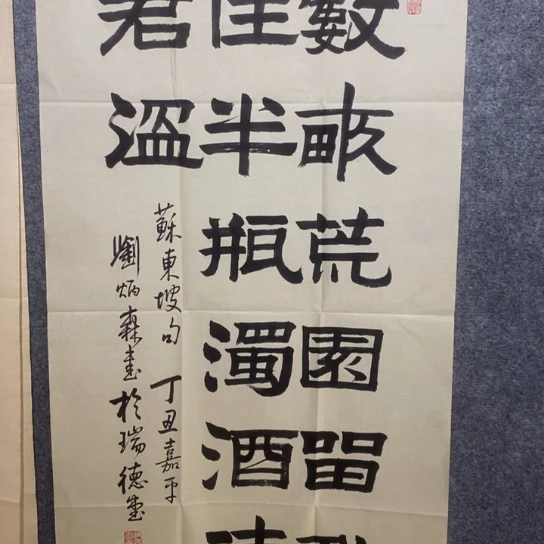 數畝荒園留
住半瓶濁酒
君溫
蘇東坡句 丁丑嘉平
劉炳森書於瑞德堂